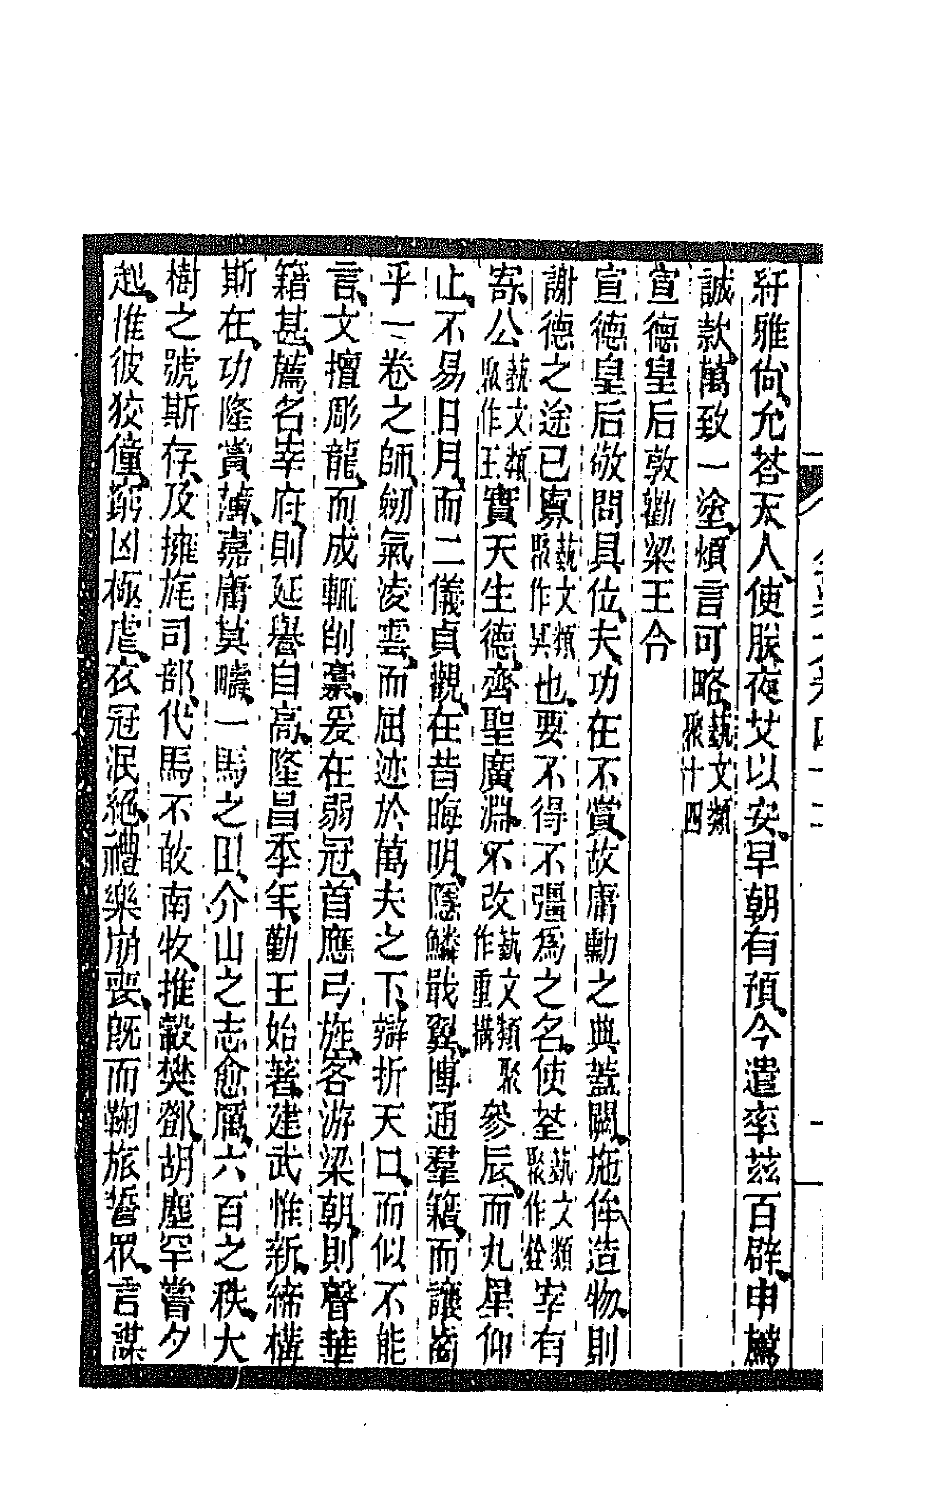 紆雅尙、允荅天人、使夙夜艾以安、早朝有預、今遣率茲百辟、申薦
誠款、萬致一塗、煩言可略、藝文類聚十四
宣德皇后敦勸梁王令
宣德皇后敬問具位、夫功在不賞、故庸勳之典蓋闕、施侔造物、則
謝德之途已寡藝文類聚作其也、要不得不彊爲之名、使荃藝文類聚作銓宰有
寄、公藝文類聚作王實天生德、齊聖廣淵、不改藝文類聚作重構參辰、而九星仰
止、不易日月、而二儀貞觀、在昔晦明、隱鱗戢翼、博通羣籍、而讓齒
乎一卷之師、劒氣凌雲、而屈迹於萬夫之下、辯折天口、而似不能
言、文擅彫龍、而成輒削藁、爰在弱冠、首應弓旌、客游梁朝、則聲華
籍甚、薦名宰府、則延譽自高、隆昌季年、勤王始著、建武惟新、締構
斯在、功隆賞薄、嘉庸莫疇、一馬之田、介山之志愈厲、六百之秩、大
樹之號斯存、及擁旄司部、代馬不敢南牧、推轂樊鄧、胡塵罕嘗夕
起、惟彼狡僮、窮凶極虐、衣冠泯絕、禮樂崩喪、旣而鞠旅誓眾、言謀